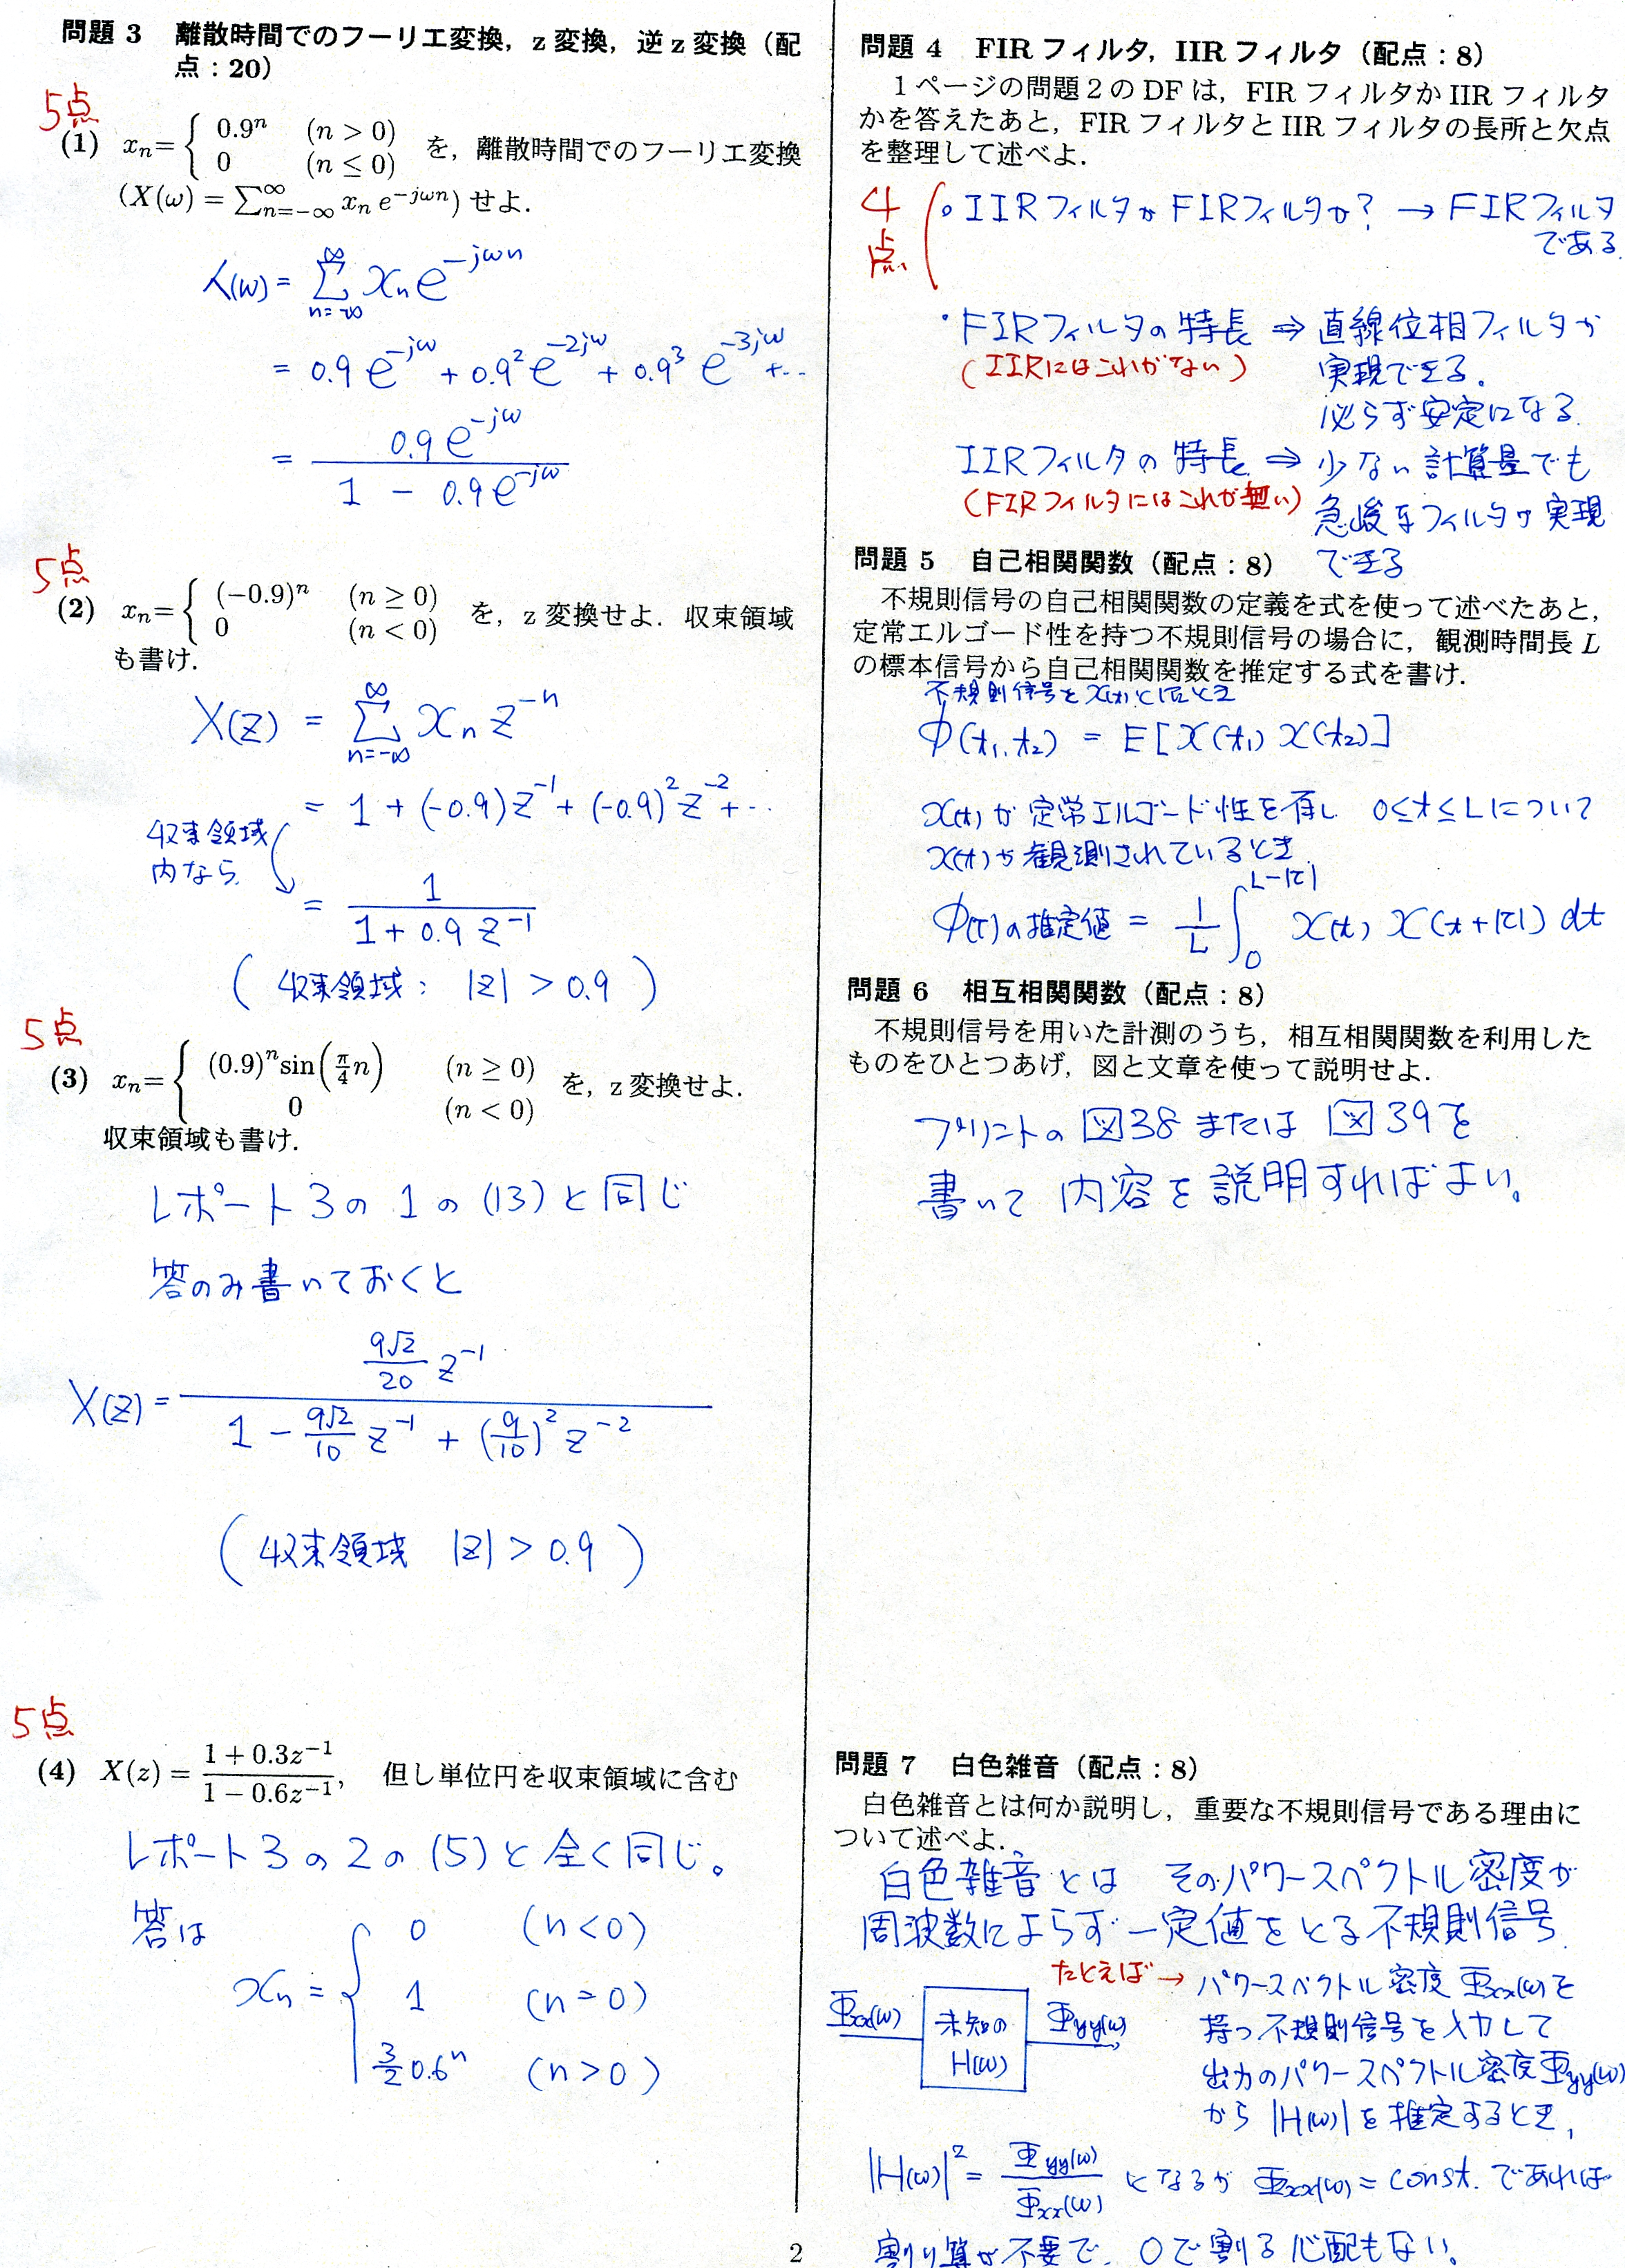 問題 3 離散時間でのフーリエ変換，z 変換，逆 z 変換（配
点：20）
5点
(1) xn= { 0.9^n (n > 0)
0 (n ≤ 0) を，離散時間でのフーリエ変換
(X(ω) = ∑_{n=-∞}^{∞} xn e^{-jωn}) せよ．
X(ω) = ∑_{n=-∞}^{∞} xn e^{-jωn}
= 0.9 e^{-jω} + 0.9^2 e^{-2jω} + 0.9^3 e^{-3jω} + …
= 0.9 e^{-jω} / (1 - 0.9 e^{-jω})
5点
(2) xn= { (−0.9)^n (n ≥ 0)
0 (n < 0) を，z 変換せよ．収束領域
も書け．
X(z) = ∑_{n=-∞}^{∞} xn z^{-n}
= 1 + (-0.9)z^{-1} + (-0.9)^2 z^{-2} + …
収束領域
内なら
= 1 / (1 + 0.9 z^{-1})
( 収束領域： |z| > 0.9 )
5点
(3) xn= { (0.9)^n sin(π/4 n) (n ≥ 0)
0 (n < 0) を，z 変換せよ．
収束領域も書け．
レポート3の 1の (13) と 同じ
答のみ書いておくと
X(z) = (9√2/20 z^{-1}) / (1 - 9√2/10 z^{-1} + (9/10)^2 z^{-2})
( 収束領域 |z| > 0.9 )
5点
(4) X(z) = (1 + 0.3z^{-1}) / (1 − 0.6z^{-1})， 但し単位円を収束領域に含む
レポート3の2の (5)と 全く同じ。
答は
xn = { 0 (n<0)
1 (n=0)
3/2 0.6^n (n>0)
問題 4 FIR フィルタ，IIR フィルタ（配点：8）
1 ページの問題 2 の DF は，FIR フィルタか IIR フィルタ
かを答えたあと，FIR フィルタと IIR フィルタの長所と欠点
を整理して述べよ．
4点
。IIRフィルタか FIRフィルタか？ → FIRフィルタ
である.
・FIRフィルタの特長 ⇒ 直線位相フィルタが
(IIRにはこれがない) 実現できる。
必らず安定になる.
IIRフィルタの 特長 ⇒ 少ない計算量でも
(FIRフィルタにはこれが無い) 急峻なフィルタが実現
できる
問題 5 自己相関関数（配点：8）
不規則信号の自己相関関数の定義を式を使って述べたあと，
定常エルゴード性を持つ不規則信号の場合に，観測時間長 L
の標本信号から自己相関関数を推定する式を書け．
不規則信号を x(t) としたとき
φ(t1, t2) = E[x(t1) x(t2)]
x(t) が 定常エルゴード性を有し 0≤t≤Lについて
x(t)が観測されているとき
φ(τ)の推定値 = 1/L ∫_0^{L-|τ|} x(t) x(t+|τ|) dt
問題 6 相互相関関数（配点：8）
不規則信号を用いた計測のうち，相互相関関数を利用した
ものをひとつあげ，図と文章を使って説明せよ．
プリントの 図38 または 図39を
書いて 内容を説明すればよい。
問題 7 白色雑音（配点：8）
白色雑音とは何か説明し，重要な不規則信号である理由に
ついて述べよ．
白色雑音とは そのパワースペクトル密度が
周波数によらず一定値をとる不規則信号.
たとえば→ パワースペクトル密度 Φxx(ω)を
Φxx(ω) 未知の H(ω) Φyy(ω)
持つ不規則信号を入力して
出力のパワースペクトル密度Φyy(ω)
から |H(ω)| を推定するとき,
|H(ω)|^2 = Φyy(ω) / Φxx(ω) となるが Φxx(ω) = const. であれば
割り算が不要で、0で割る心配もない。
2